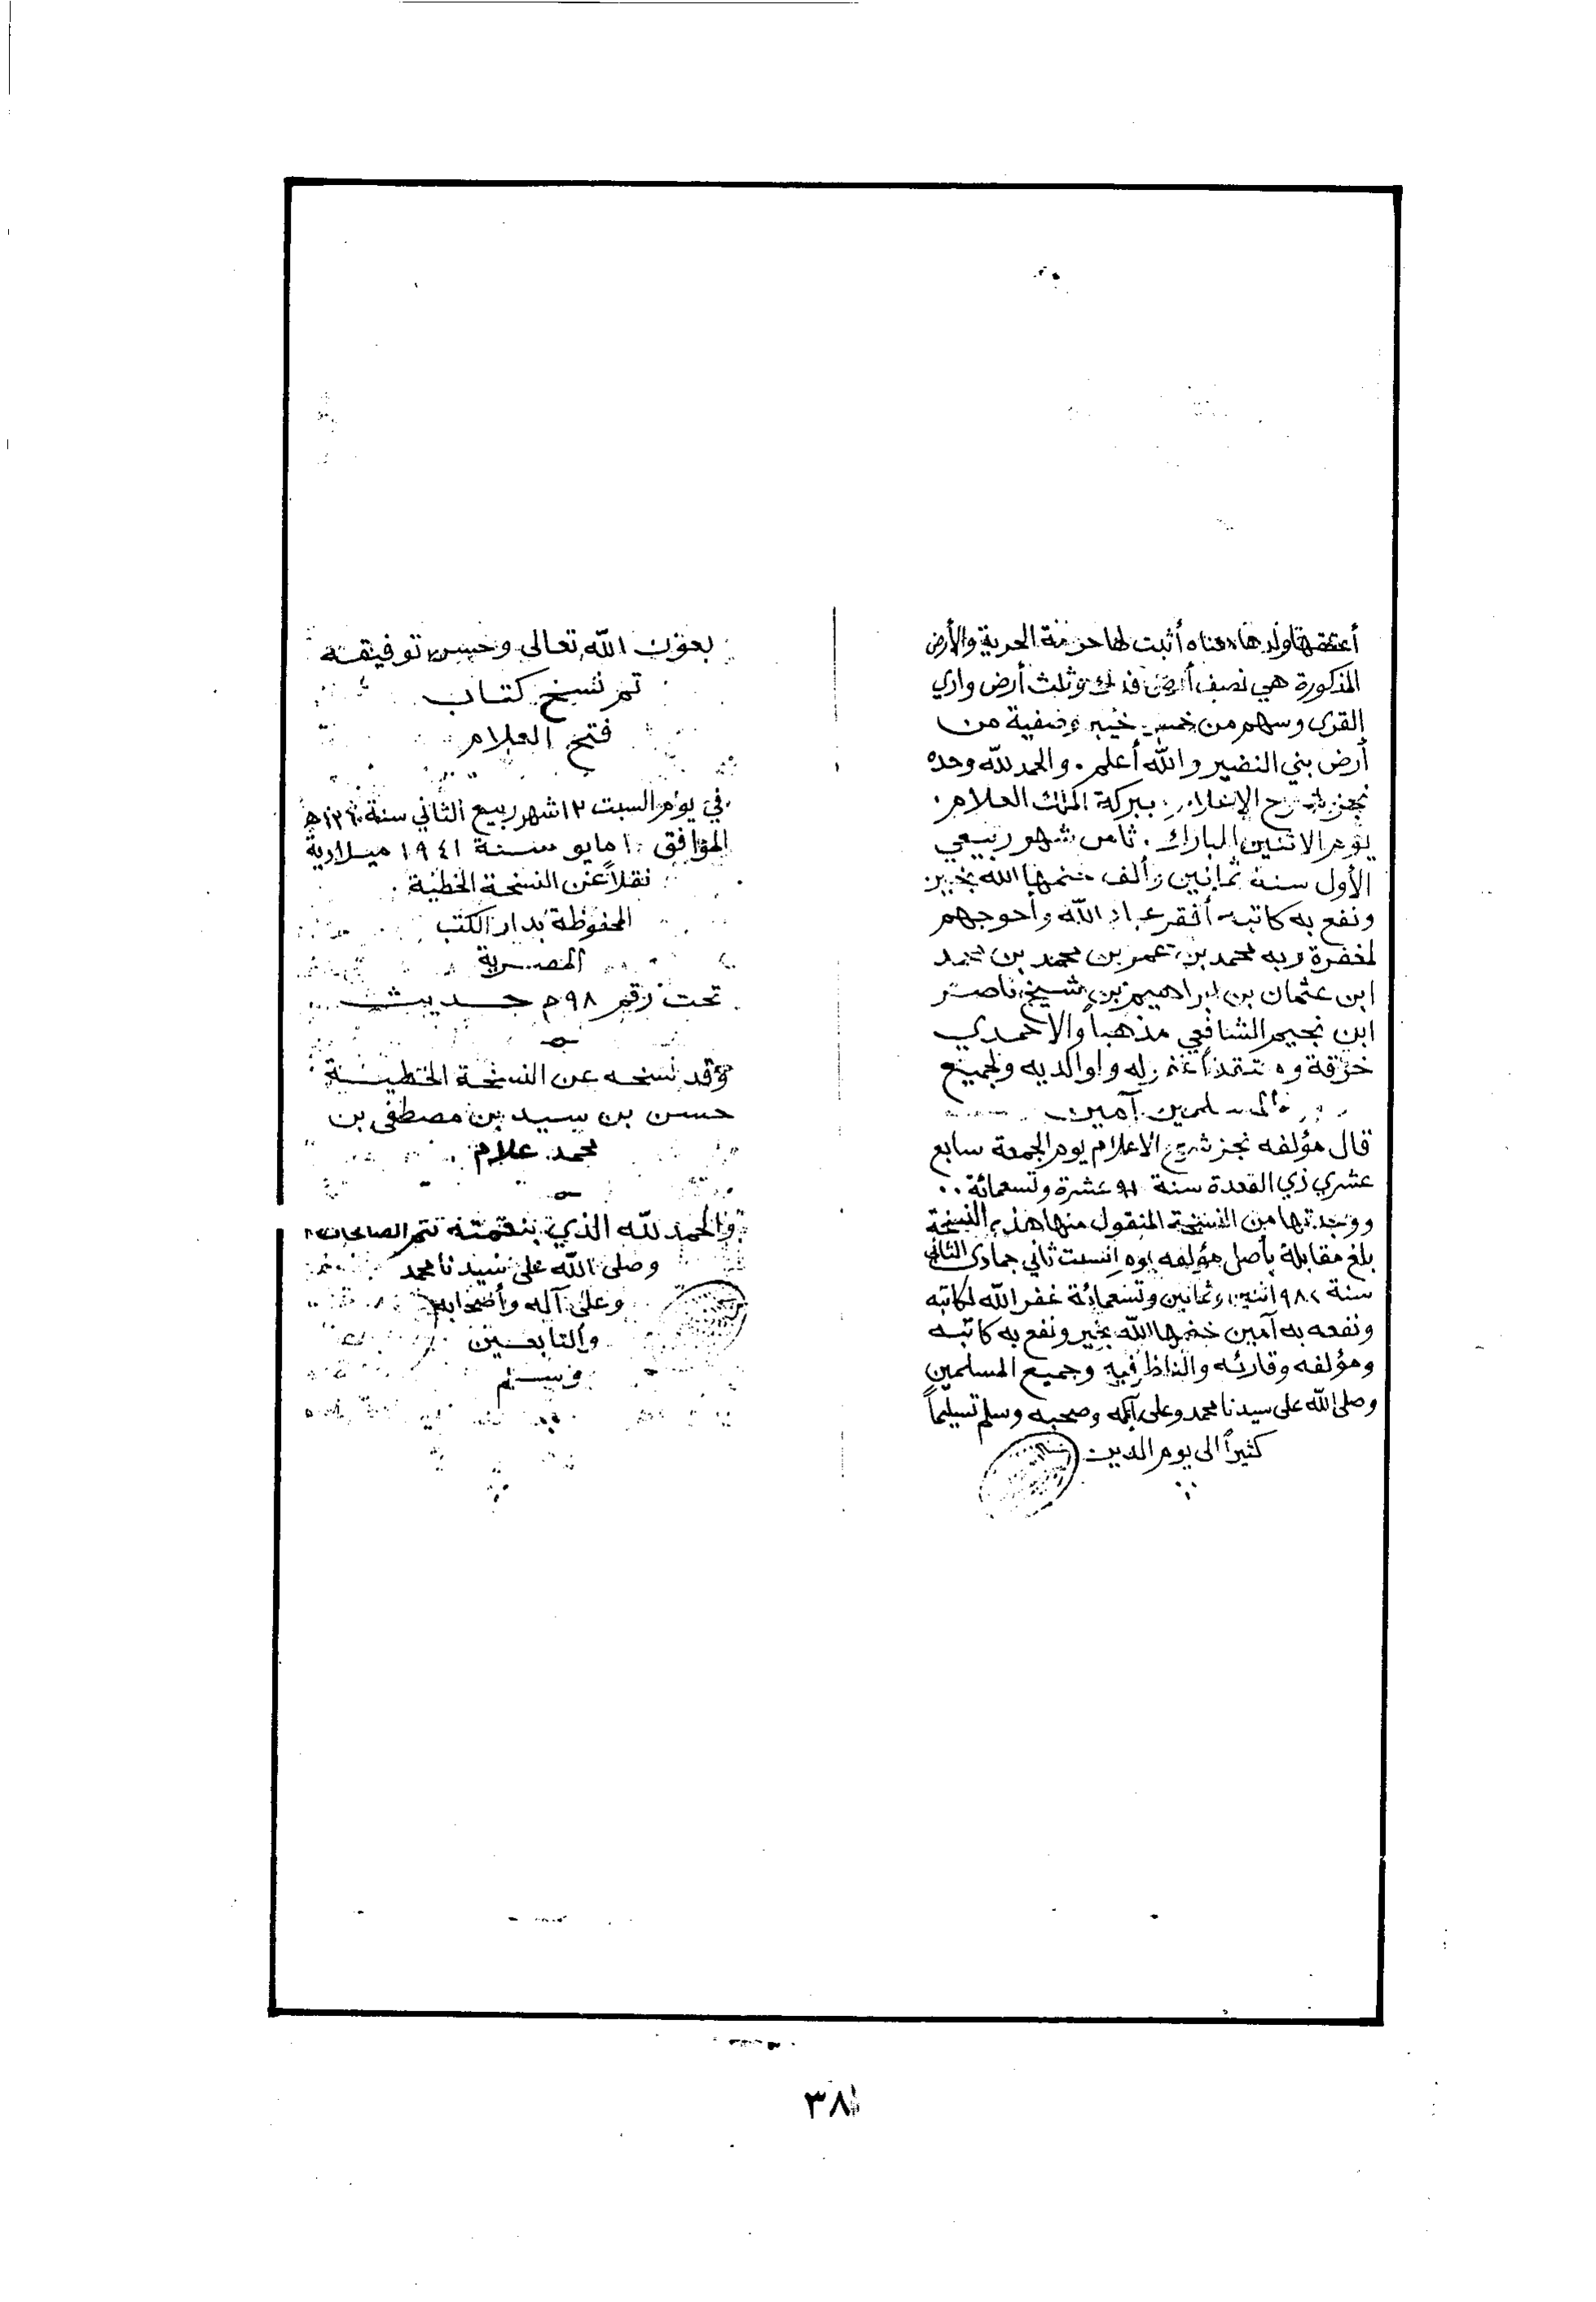 أعتقها ولدها معناه أثبت لها حرمة الحرية والأرض
المذكورة هي نصف أرض فدك وثلث أرض وادي
القرى وسهم من خمس خيبر وصفية من
أرض بني النضير والله أعلم . والحمد لله وحده
نجز شرح الإعلام ببركة الملك العلام .
يوم الاثنين المبارك . ثامن شهر ربيعي
الأول سنة ثمانين وألف ختمها الله بخير
ونفع به كاتبه أفقر عباد الله وأحوجهم
لمغفرة ربه محمد بن عمر بن محمد بن محمد
ابن عثمان بن إبراهيم بن شيخ ناصر
ابن نجيم الشافعي مذهباً والاحمدي
خرقة غفر له ولوالديه ولجميع
المسلمين آمين
قال مؤلفه نجز شرح الاعلام يوم الجمعة سابع
عشري ذي القعدة سنة عشرة وتسعمائة ..
ووجدتها من النسخة المنقول منها هذه النسخة
بلغ مقابلة بأصل مؤلفه يوم السبت ثاني جمادى الثاني
سنة ٩٨٢ اثنين وثمانين وتسعمائة غفر الله لكاتبه
ونفعه به آمين ختمها الله بخير ونفع به كاتبه
ومؤلفه وقارئه والناظر فيه وجميع المسلمين
وصلى الله على سيدنا محمد وعلى آله وصحبه وسلم تسليماً
كثيراً الى يوم الدين
بعون الله تعالى وحسن توفيقه
تم نسخ كتاب
فتح العلام
في يوم السبت ١٢ شهر ربيع الثاني سنة ١٣٦٠ ه
الموافق ١٠ مايو سنة ١٩٤١ ميلادية
نقلاً عن النسخة الخطية
المحفوظة بدار الكتب
المصرية
تحت رقم ٩٨ م حديث
وقد نسخه عن النسخة الخطية
حسن بن سيد بن مصطفى بن
محمد علام
والحمد لله الذي بنعمته تتم الصالحات
وصلى الله على سيدنا محمد
وعلى آله وأصحابه
والتابعين
وسلم
٣٨